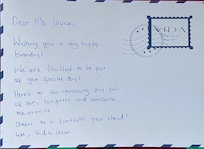 Dear Ms. Louise,
Wishing you a very happy
birthday!
We are thrilled to be part
of your special day!
Here's to an amazing day full
of fun, laughter and awesome
memories
Cheers to a fantastic year ahead!
Love, Vida crew
VIDA